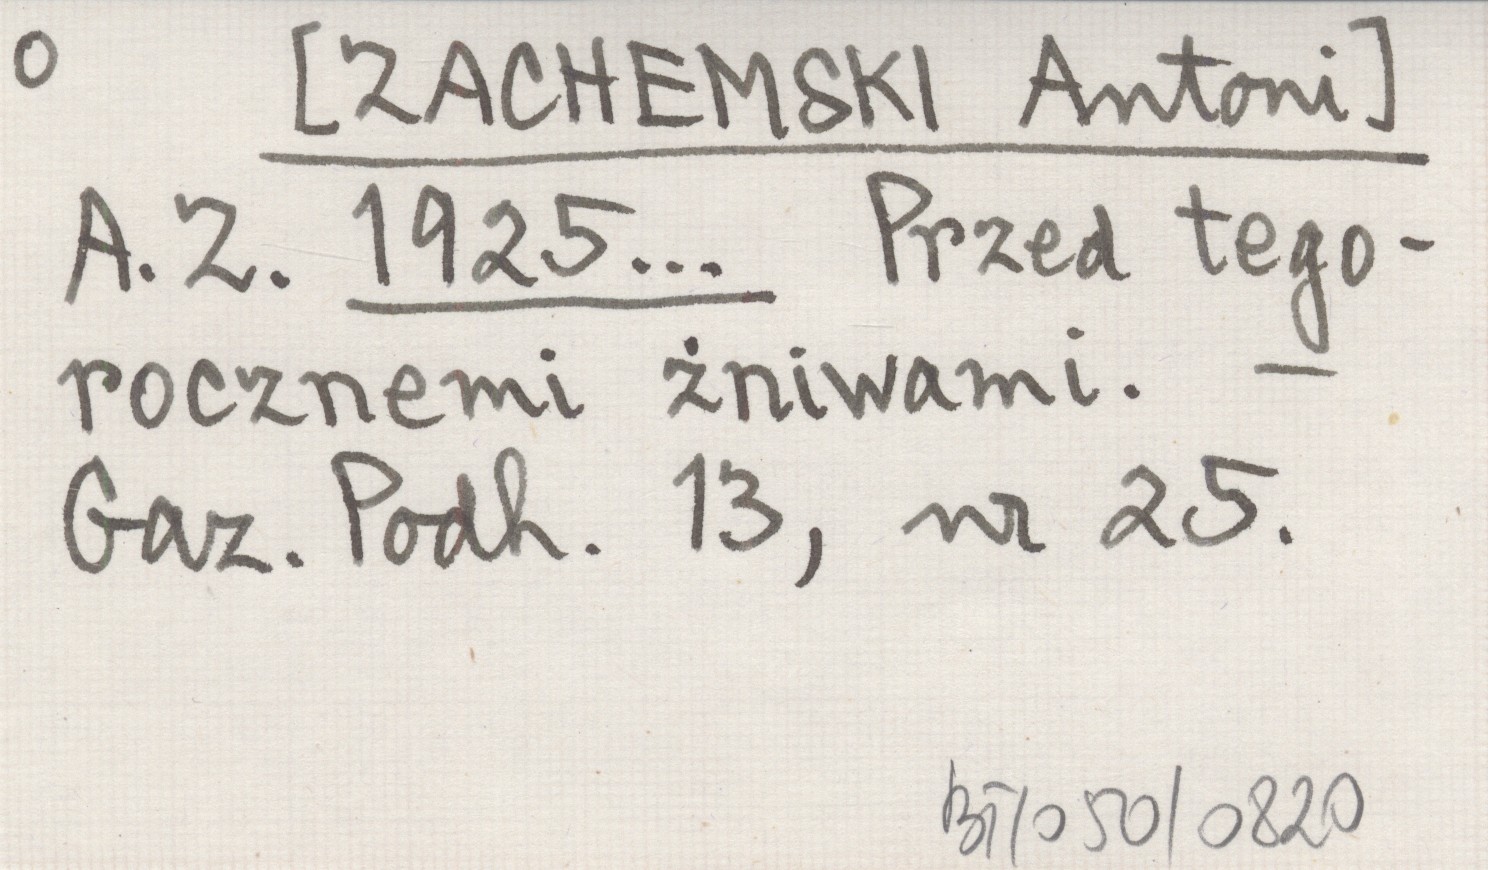 o [ZACHEMSKI Antoni]
A.Z. 1925... Przed tego-
rocznemi żniwami. —
Gaz. Podh. 13, nr 25.
BT/050/0820